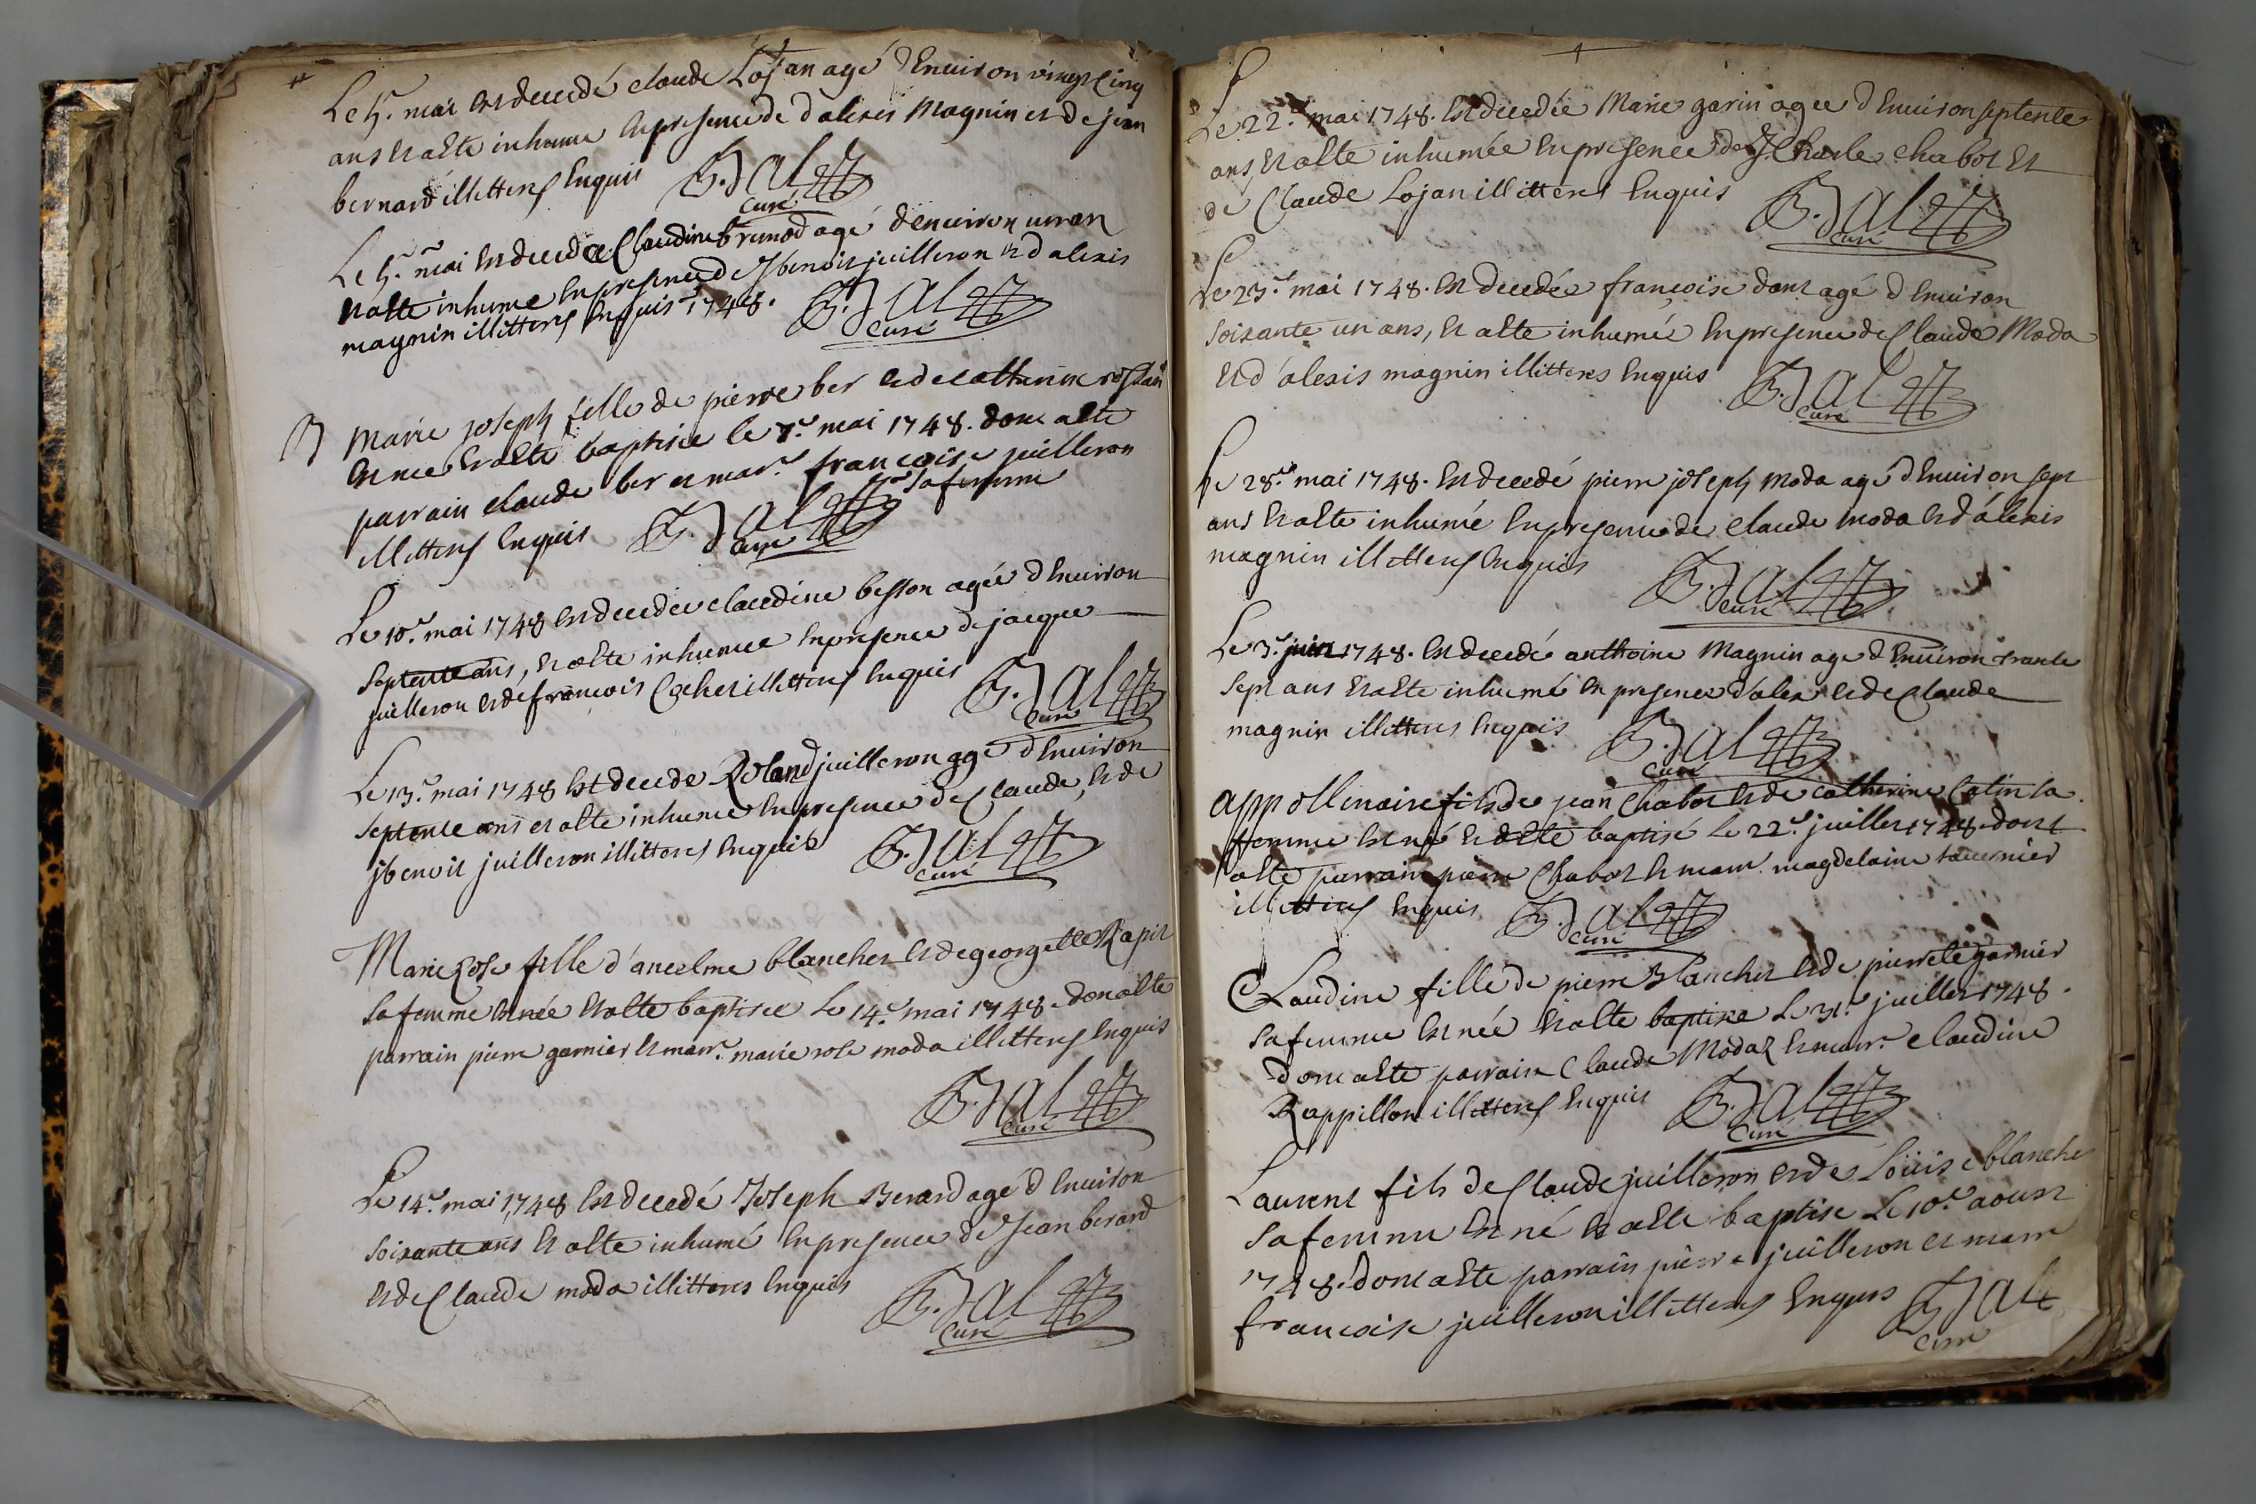 Le 5.e mai est decedé claude Lojan agé d'Environ vingt cinq
ans et a ete inhumé En presence de d'alexis Magnin et de jean
bernard illitteres Enquis B. Jal
curé
Le 5.e mai est decedée Claudine brunod agé d'environ un an
et a ete inhumé En presence de J benoit juilleron et d'alexis
magnin illitteres Enquis 1748. B. Jal
curé
B Marie joseph fille de pierre ber et de catherine
Est née et a ete baptisée le 7.e mai 1748. dont a ete
parrain claude ber et mar.e francoise juilleron
sa femme
illitteres Enquis B. Jal
curé
Le 10.e mai 1748 est decedée claudine besson agée d'Environ
septente ans, et a ete inhumée En presence de jacque
juilleron et de francois Cochet illitteres Enquis B. Jal
curé
Le 13.e mai 1748 Est decede Roland juilleron agé d'Environ
septente ans et a ete inhumé En presence de Claude, et de
jbenoit juilleron illitteres Enquis B. Jal
curé
Marie Rose fille d'ancelme blanchet et de georgette Rapit
sa femme est née et a ete baptisée Le 14.e mai 1748. dont a ete
parrain pierre garnier et marr.e marie rose moda illitteres Enquis
B. Jal
curé
Le 14.e mai 1748 Est decedé Joseph Berard agé d'Environ
soixante ans Et a ete inhumé En presence de Jean berard
et de Claude moda illitteres Enquis B. Jal
curé
Le 22.e mai 1748. Est decedée Marie garin agée d'Environ septente
ans, Et a ete inhumée En presence de J. Charle chabot Et
de Claude Lojan illitteres Enquis B. Jal
curé
Le 23.e mai 1748. Est decedée françoise dont agé d'Environ
soixante un ans, Et a ete inhumée En presence de Claude Moda
Et d'alexis magnin illitteres Enquis B. Jal
curé
Le 28.e mai 1748. Est decedé pierre joseph moda agé d'Environ sept
ans Et a ete inhumé En presence de claude moda et d'alexis
magnin illitteres Enquis B. Jal
curé
Le 3.e juin 1748. Est decedé anthoine Magnin agé d'Environ trante
sept ans Et a ete inhumé En presence d'alex. et de Claude
magnin illitteres Enquis B. Jal
curé
appollinaire fils de jean Chabot et de catherine Catin sa
femme Est né Et a ete baptisé Le 22.e juillet 1748. dont
a ete parrain pierre Chabot Et marr. magdelaine tavernier
illitteres Enquis B. Jal
curé
Claudine fille de pierre Blanchet et de pierrete garnier
sa femme Est née Et a ete baptisée Le 31.e juillet 1748.
dont a ete parrain Claude Modaz Et marr.e claudine
Rappillon illitteres Enquis B. Jal
curé
Laurent fils de Claude juilleron et de Loüise blanche
sa femme Est né Et a ete baptisé Le 10.e aoust
1748. dont a ete parrain pierre juilleron et marr
francoise juilleron illitteres Enquis B Jal
curé